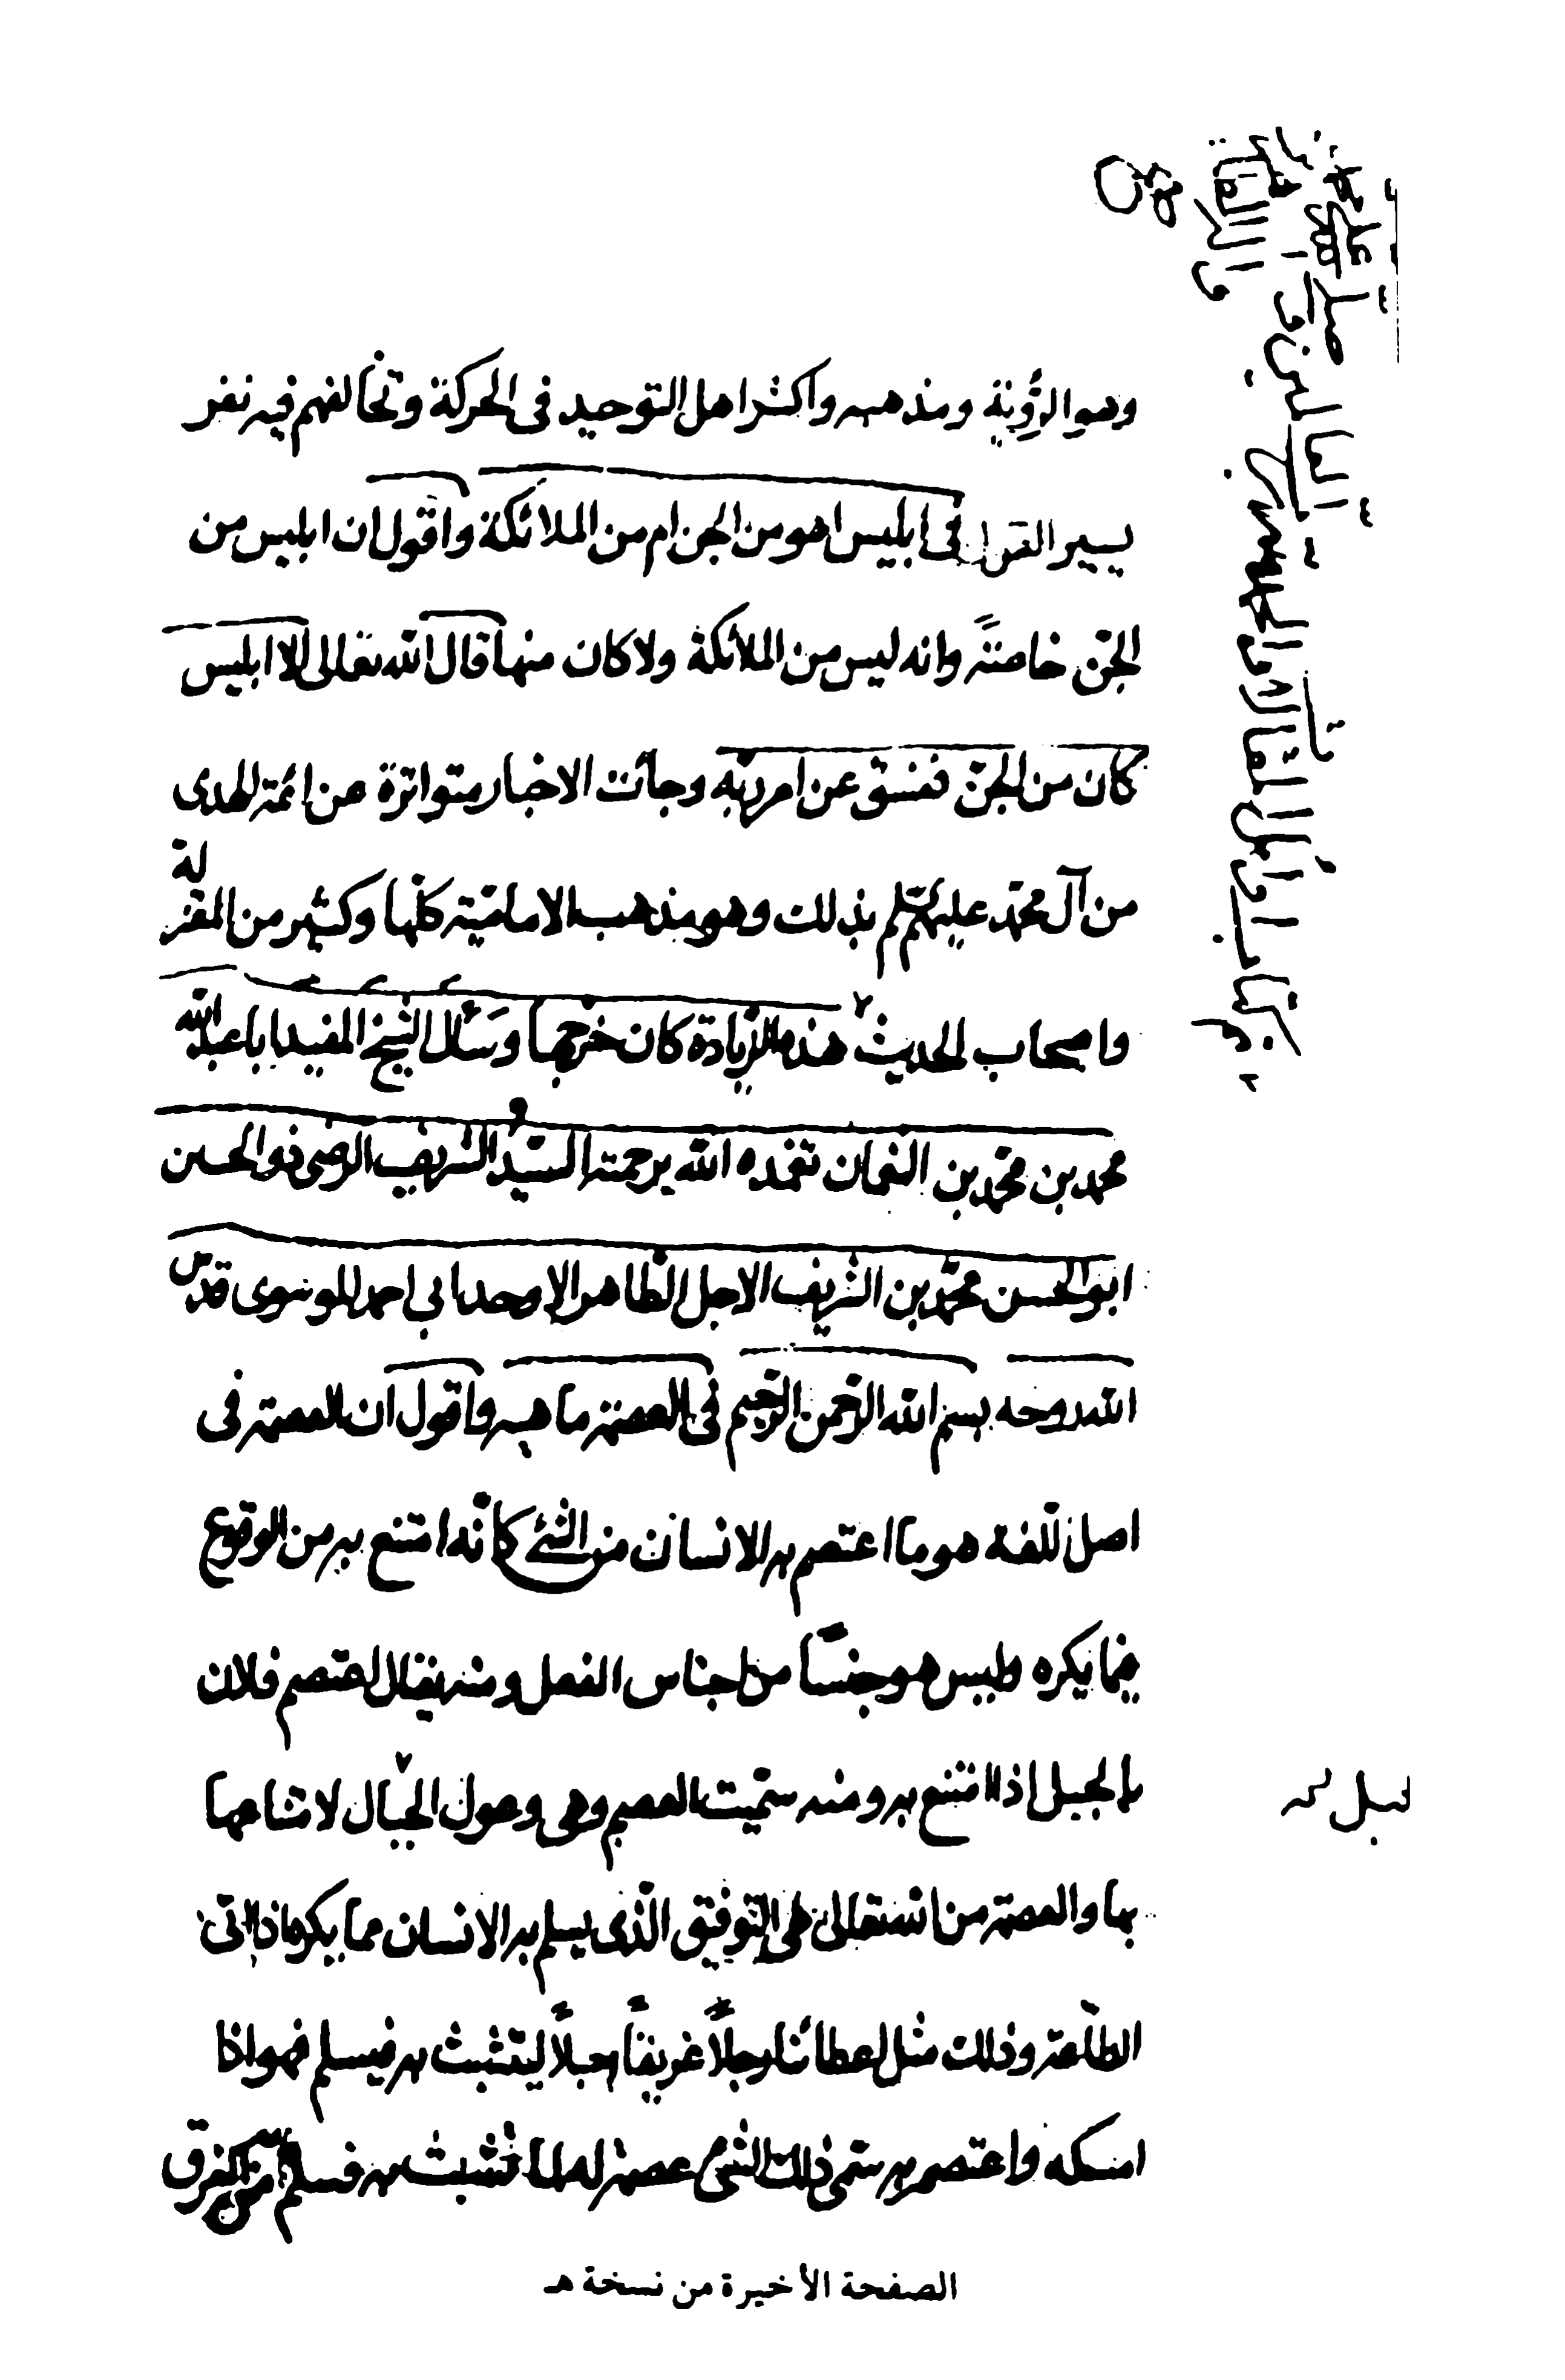 وهو الرؤية ومذهبه واكثر اهل التوحيد فى الحركة ويخالفهم فيه نفر
يسير القول فى ابليس اهو من الجن ام من الملائكة واقول ان ابليس من
الجن خاصّة وانه ليس من الملائكة ولا كان منها قال الله تعالى الا ابليس
كان من الجن ففسق عن امر ربّه وجائت الاخبار متواترة من ائمة الهدى
من آل محمّد عليهم بذلك وهو مذهب الامامّية كلّها وكثير من المعتزلة
واصحاب الحديث هذه الزّيادة كان خرجها وسئل الشيخ المفيد ابا عبد الله
محمد بن محمّد بن النعمان تغمّده الله برحمته السّيّد الشريف الرضى ذو الحسين
ابو الحسن محمّد بن الشريف الاجل الطاهر الاوحد ابي احمد الموسوى قدّس
الله روحه بسم الله الرحمن الرحيم فى العصمة ما هيه واقول ان العصمة فى
اصل اللّغة هو ما اعتصم به الانسان من الشئ كانّه امتنع به من الوقوع
فيما يكره وليس هو جنسًا من اجناس الفعل ومنه يقال اعتصم فلان
بالجبل اذا امتنع به ومنه سمّيت العصم وهى وعول الجبال لامتناعها
بها والعصمة من الله تعالى هى التوفيق الّذى يسلم به الانسان مما يكره اذا اتى
الطّاعة وذلك مثل اعطائنا رجلًا غريقًا حبلًا ليتشبث به فيسلم فهو اذا
امسكه واعتصم به سمى ذلك الشئ عصمة له لما تشبث به فسلم من الغرق
الصفحة الأخيرة من نسخة هـ